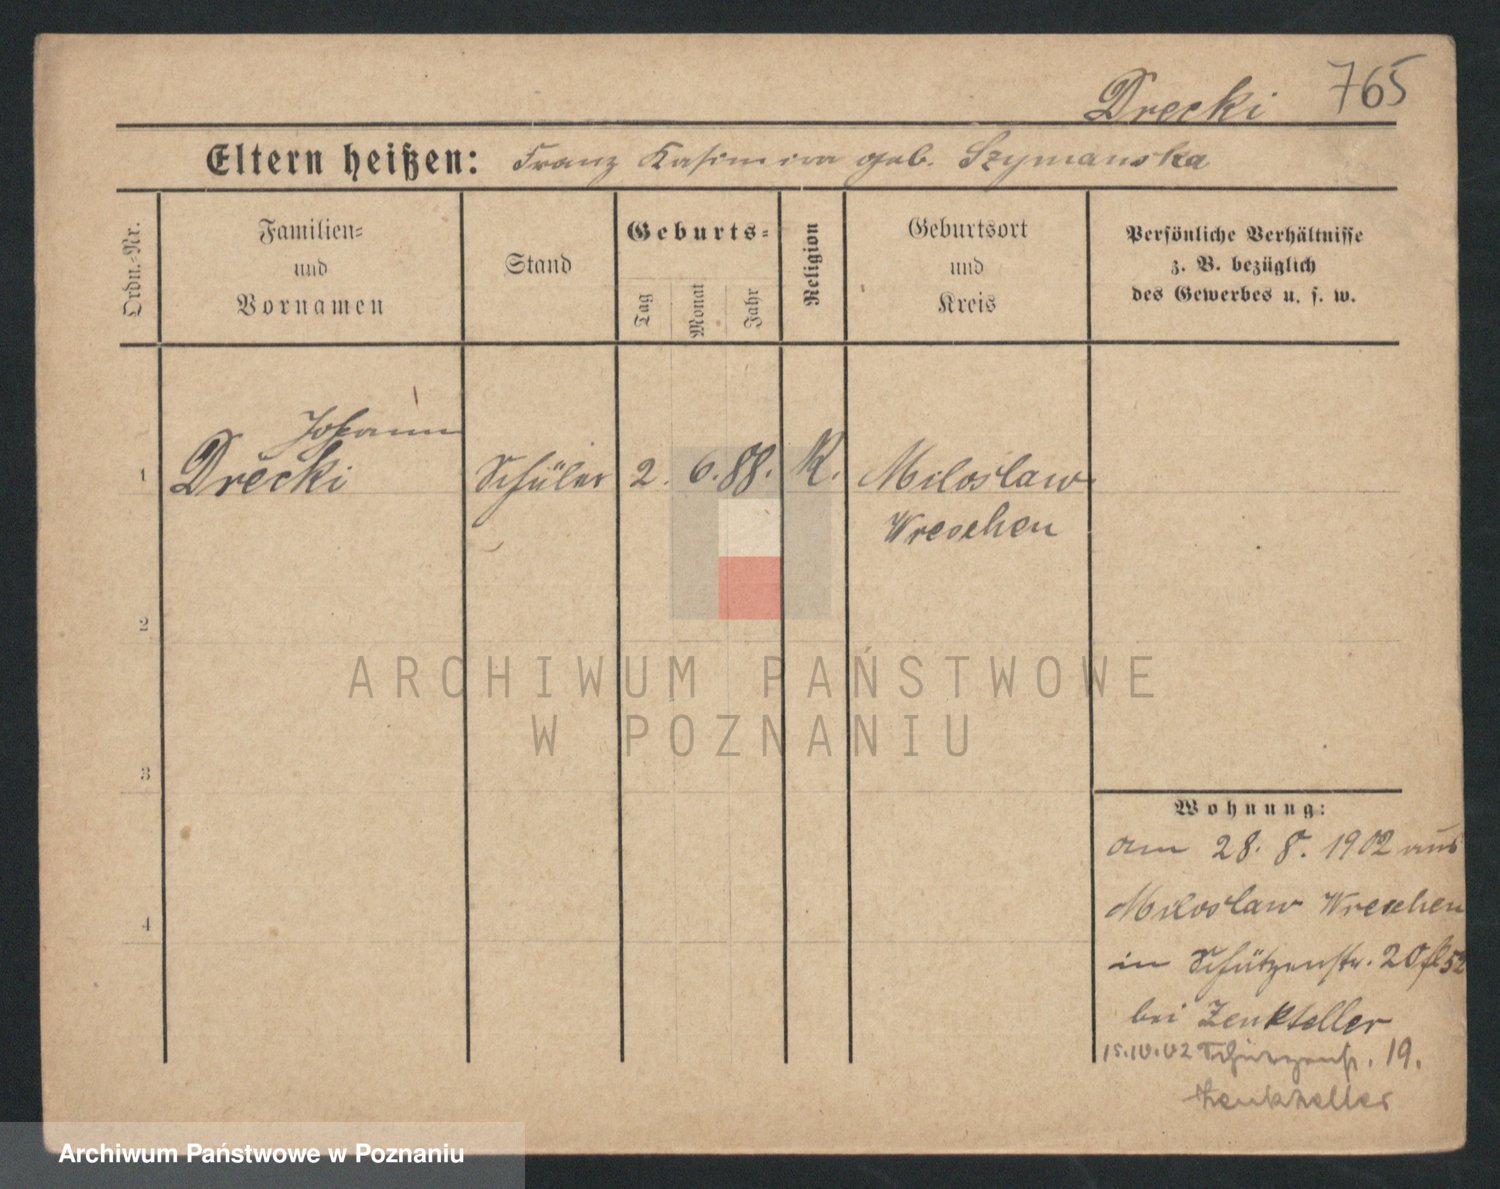 765
Drecki
Eltern heißen: Franz Kasimira geb. Szymanska
Ordn.-Nr.
Familien-
und
Vornamen
Stand
Geburts-
Tag
Monat
Jahr
Religion
Geburtsort
und
Kreis
Persönliche Verhältnisse
z. B. bezüglich
des Gewerbes u. s. w.
Johann
1 Drecki Schüler 2. 6. 88. K. Miloslaw
Wreschen
2
ARCHIWUM PAŃSTWOWE
W POZNANIU
3
Wohnung:
am 28. 8. 1902 aus
Miloslaw Wreschen
4
in Schützenstr. 20
bei Zenkteller
15.10.02 Schützenstr. 19.
Zenkteller
Archiwum Państwowe w Poznaniu